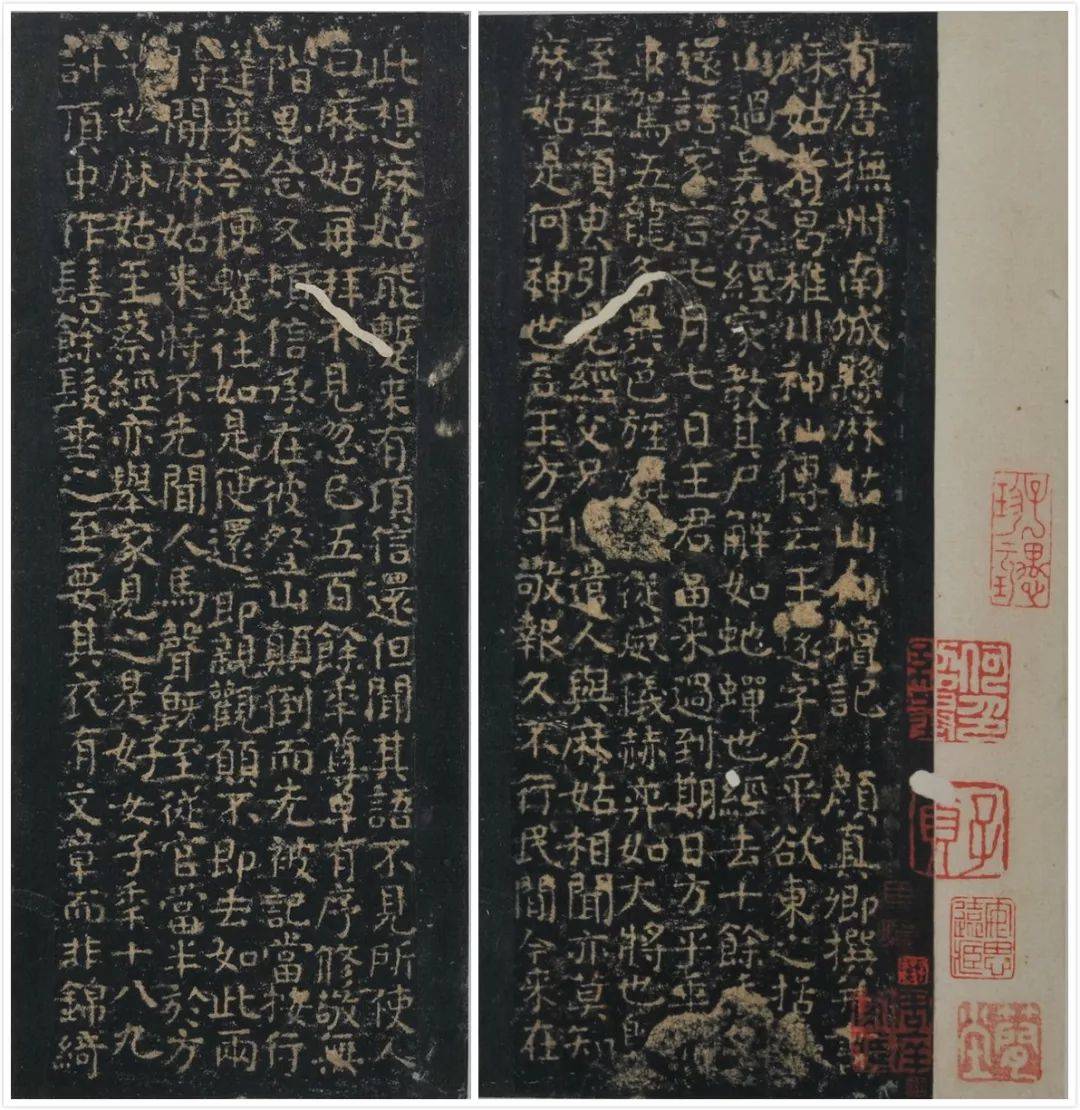 有唐撫州南城縣麻姑山仙壇記 顏真卿撰
麻姑者葛稚川神仙傳云王遠字方平欲東之括
山過吳蔡經家教其尸解如虵蟬也經去十餘年
還語家言七月七日王君當來過到期日方平乘
車駕五龍各異色旌旗從威儀赫弈如大將也既
至坐須臾引見經父兄遣人與麻姑相聞亦莫知
麻姑是何神也言王方平敬報久不行民間今來在
此想麻姑能蹔來有頃信還但聞其語不見所使人
曰麻姑再拜不見忽已五百餘年尊卑有序修敬無
階思念久煩信承在彼登山顛倒而先被記當按行
蓬萊今便蹔往如是便還二即親觀願不即去如此兩
時間麻姑來時不先聞人馬聲既至從官當半於方
平也麻姑至蔡經亦舉家見之是好女子年十八九
許頂中作髻餘髮垂之至要其衣有文章而非錦綺
子貞